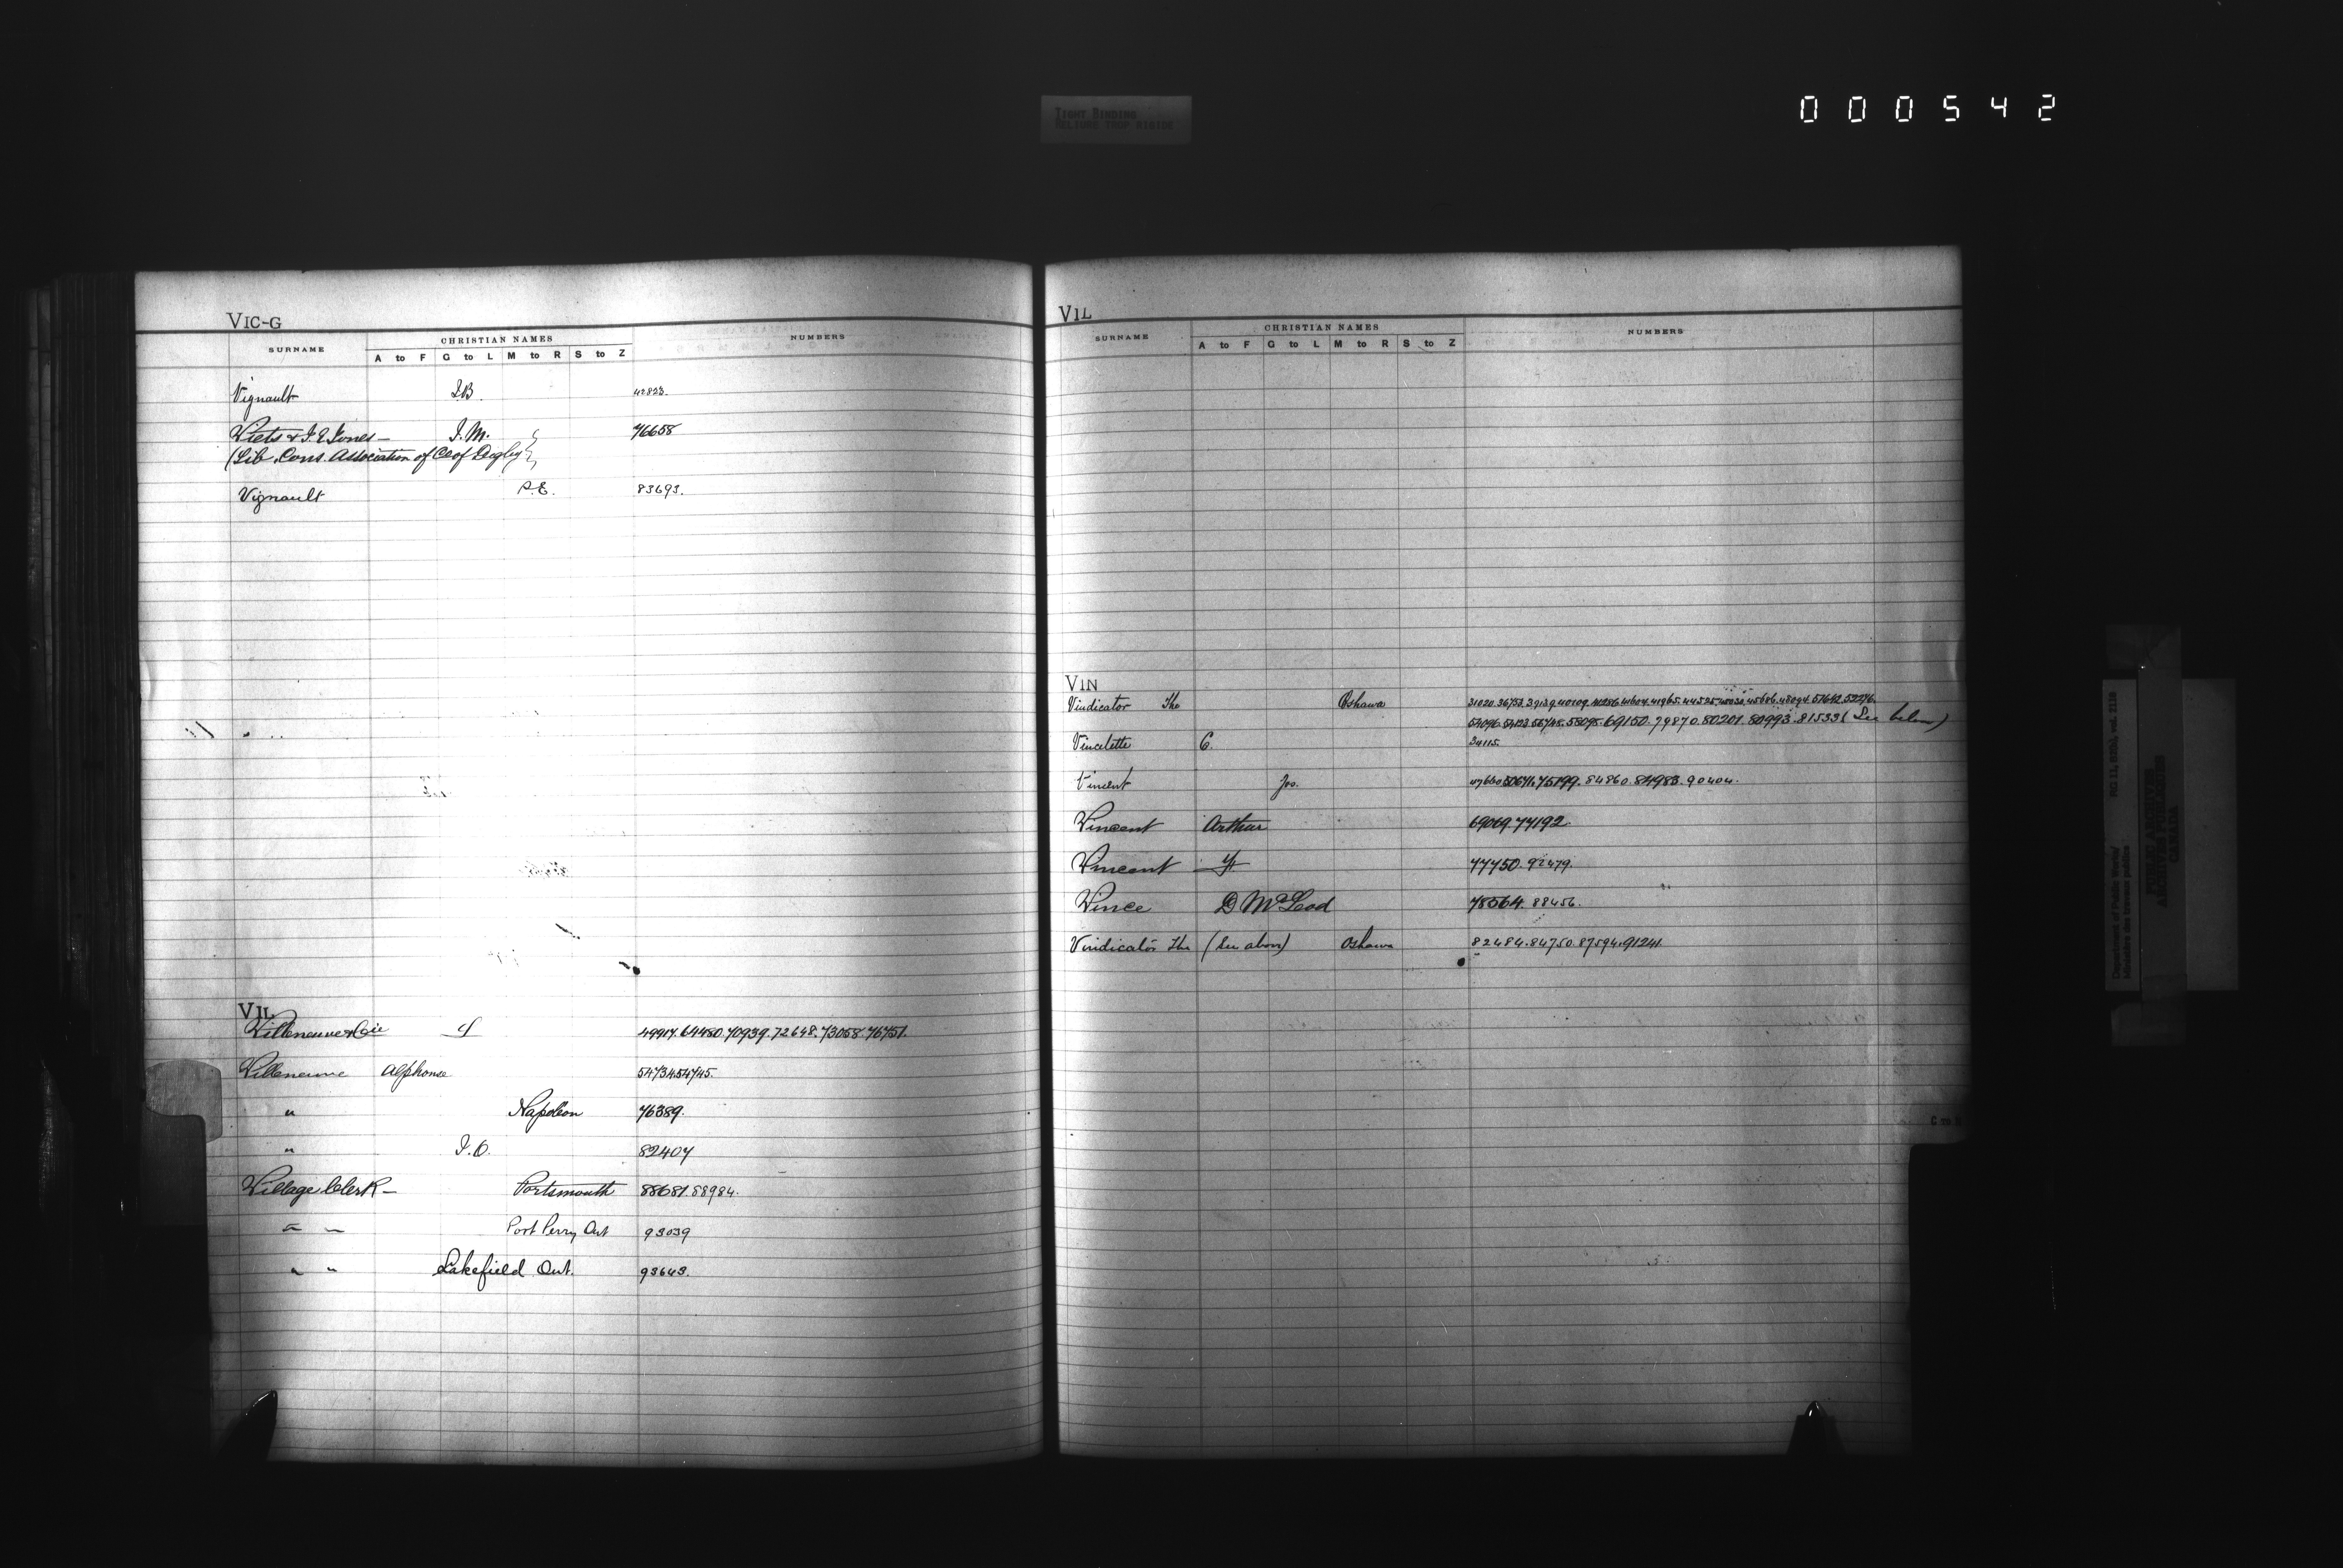 000542
TIGHT BINDING
RELIURE TROP RIGIDE
VIC-G
SURNAME CHRISTIAN NAMES NUMBERS
A to F G to L M to R S to Z
Vignault J.B. 42823.
Viets & J.E. Jones - J.M. 76658
(Lib. Cons. Association of Co of Digby)
Vignault P.E. 83693.
VIL
Villeneuve & Cie J 49917. 64480. 70939. 72648. 73058. 76751.
Villeneuve Alphonse 54734. 54745.
" Napoleon 76389.
" J.O. 82407
Village Clerk - Portsmouth 88681. 88984.
" " Port Perry Ont 93039
" " Lakefield Ont. 93643.
VIL
SURNAME CHRISTIAN NAMES NUMBERS
A to F G to L M to R S to Z
VIN
Vindicator The Oshawa 31020. 36753. 39139. 40109. 41286. 41604. 41965. 44525. 45606. 48094. 51642. 52276.
53096. 54123. 56745. 58095. 69150. 79870. 80201. 80993. 81533 (See below)
Vincelette C. 34115.
Vincent Jos. 47660. 50671. 75199. 84860. 84983. 90404.
Vincent Arthur 69069. 74192.
Vincent 77750. 92479.
Vince D McLeod 78564. 88456.
Vindicator The (See above) Oshawa 82484. 84750. 87594. 91241.
Department of Public Works RG 11, B2(b), vol. 2118
Ministère des travaux publics
PUBLIC ARCHIVES
ARCHIVES PUBLIQUES
CANADA